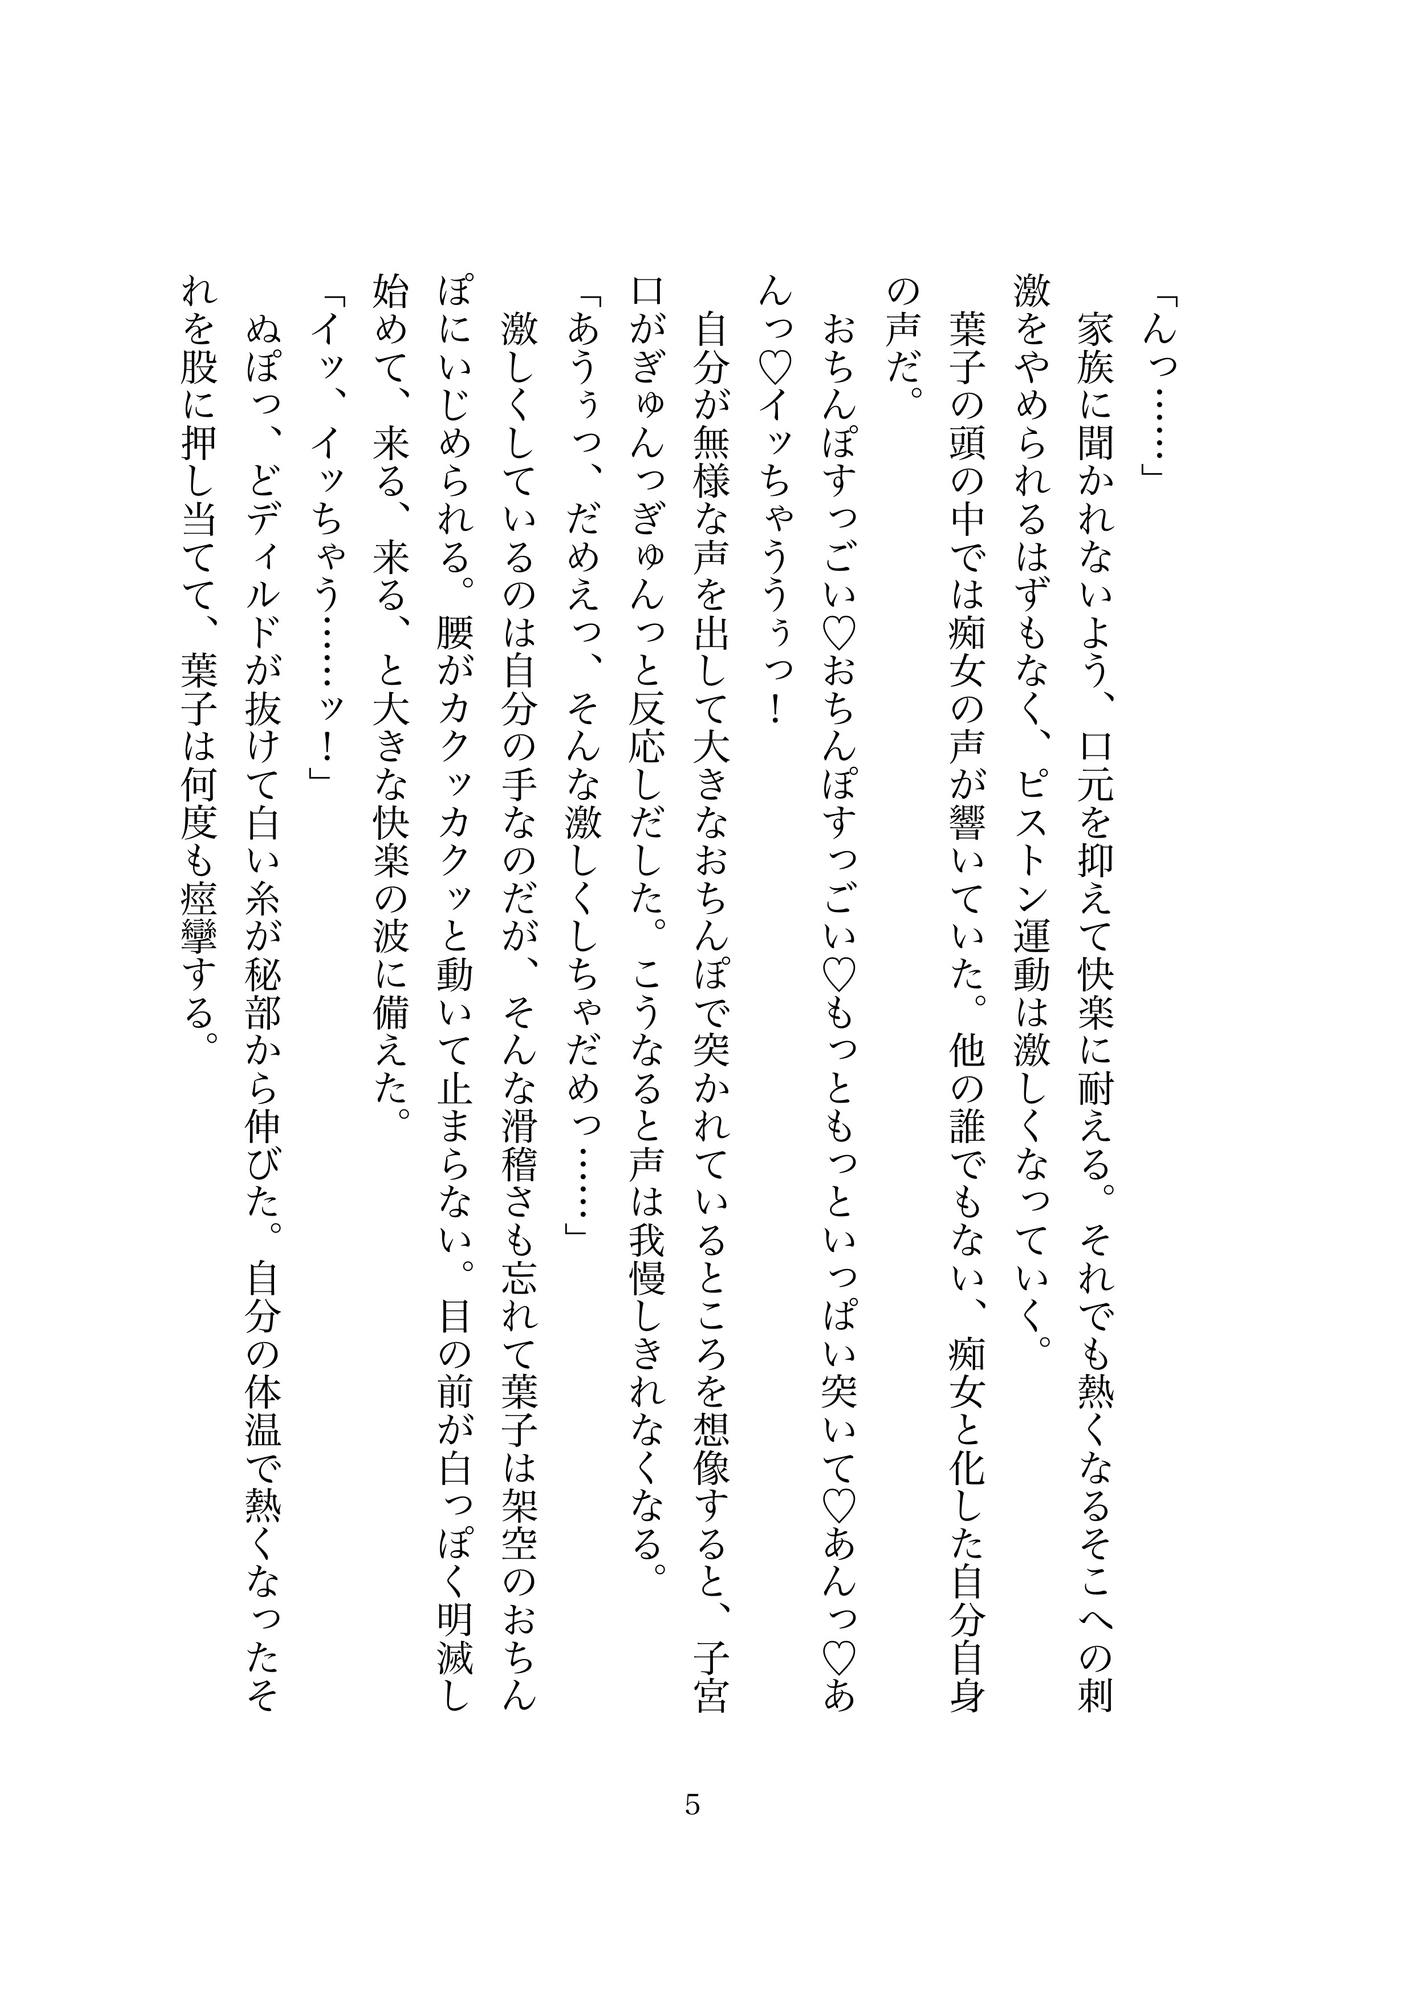 「んっ……」
　家族に聞かれないよう、口元を抑えて快楽に耐える。それでも熱くなるそこへの刺
激をやめられるはずもなく、ピストン運動は激しくなっていく。
　葉子の頭の中では痴女の声が響いていた。他の誰でもない、痴女と化した自分自身
の声だ。
　おちんぽすっごい♡おちんぽすっごい♡もっともっといっぱい突いて♡あんっ♡あ
んっ♡イッちゃううぅっ！
　自分が無様な声を出して大きなおちんぽで突かれているところを想像すると、子宮
口がぎゅんっぎゅんっと反応しだした。こうなると声は我慢しきれなくなる。
「あうぅっ、だめえっ、そんな激しくしちゃだめっ……」
　激しくしているのは自分の手なのだが、そんな滑稽さも忘れて葉子は架空のおちん
ぽにいじめられる。腰がカクッカクッと動いて止まらない。目の前が白っぽく明滅し
始めて、来る、来る、と大きな快楽の波に備えた。
「イッ、イッちゃう……ッ！」
　ぬぽっ、どディルドが抜けて白い糸が秘部から伸びた。自分の体温で熱くなったそ
れを股に押し当てて、葉子は何度も痙攣する。
5